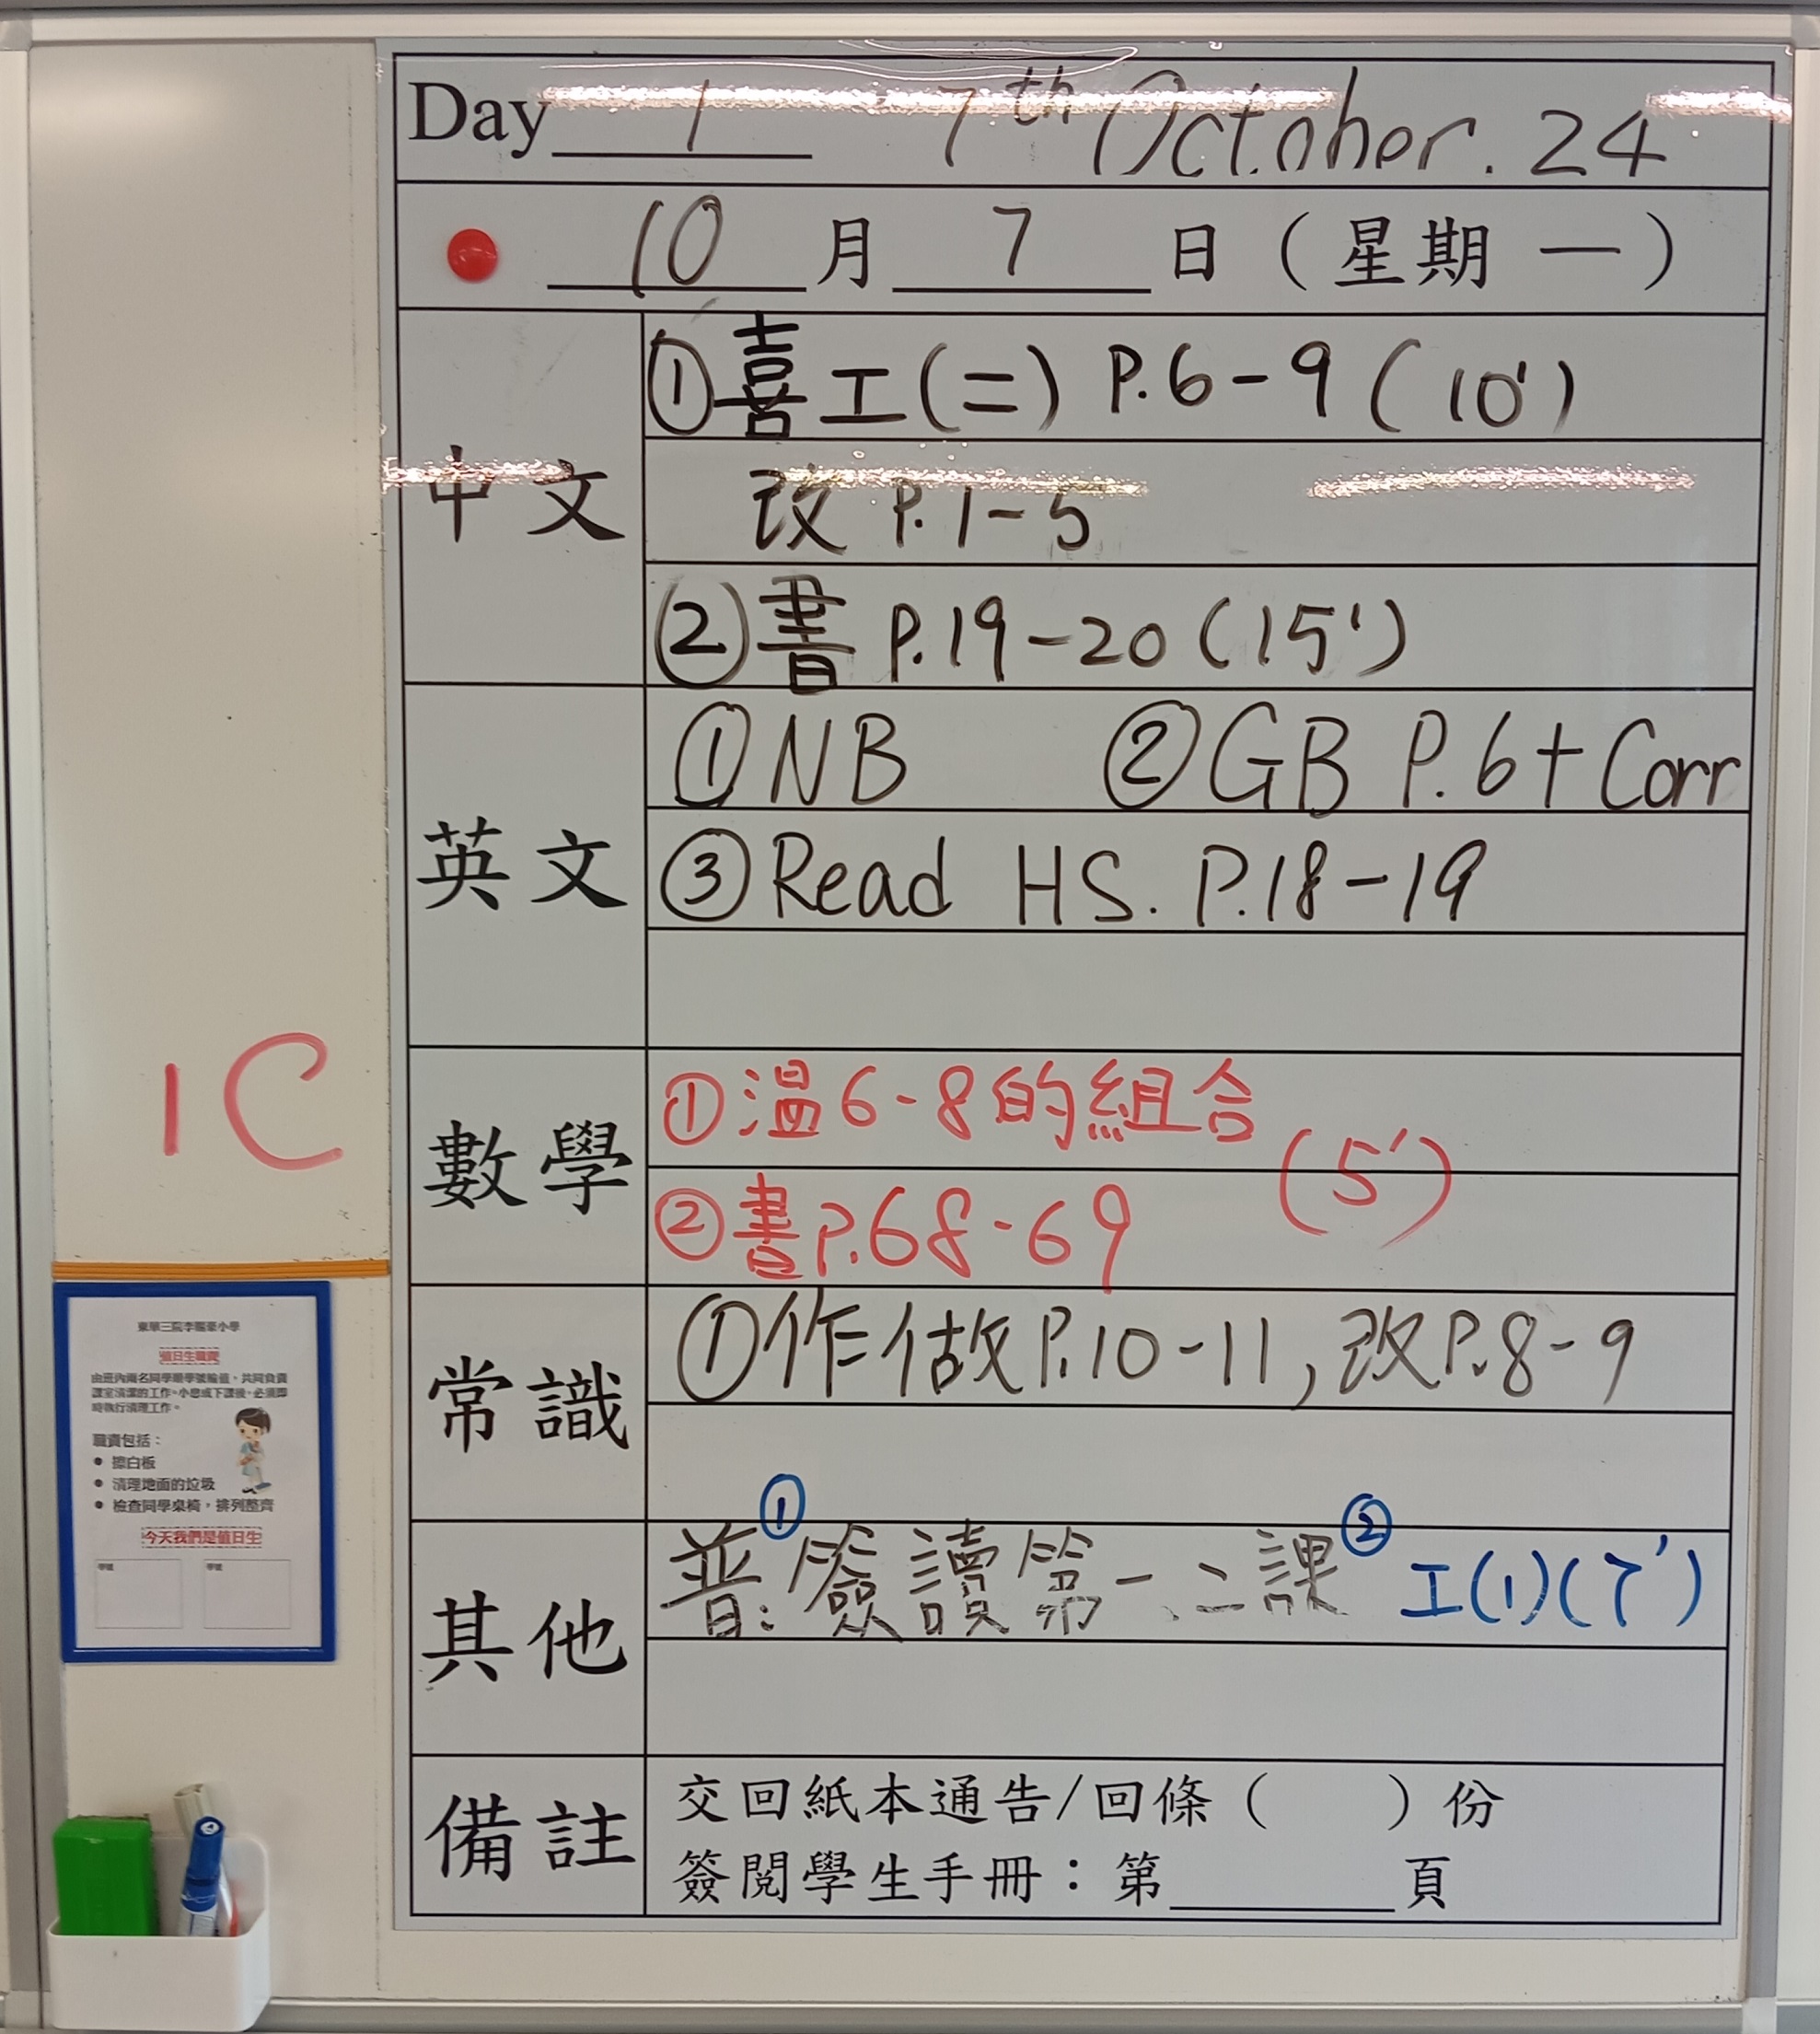 Day 1 7th October. 24
10 月 7 日 (星期 一)
中文
①喜工(二) P.6-9 (10')
改 P.1-5
②書 P.19-20 (15')
英文
①NB ②GB P.6+Corr
③Read HS. P.18-19
1C
數學
①溫6-8的組合
(5')
②書P.68-69
常識
①作做P.10-11, 改P.8-9
其他
普:①簽讀第一、二課 ②工(1)(7')
備註
交回紙本通告/回條( )份
簽閱學生手冊:第 頁
值日生職責
由班內兩名同學順學號輪值,共同負責
課室清潔的工作。小息或下課後,必須即
時執行清理工作。
職責包括:
● 擦白板
● 清理地面的垃圾
● 檢查同學桌椅,排列整齊
今天我們是值日生
學號 學號